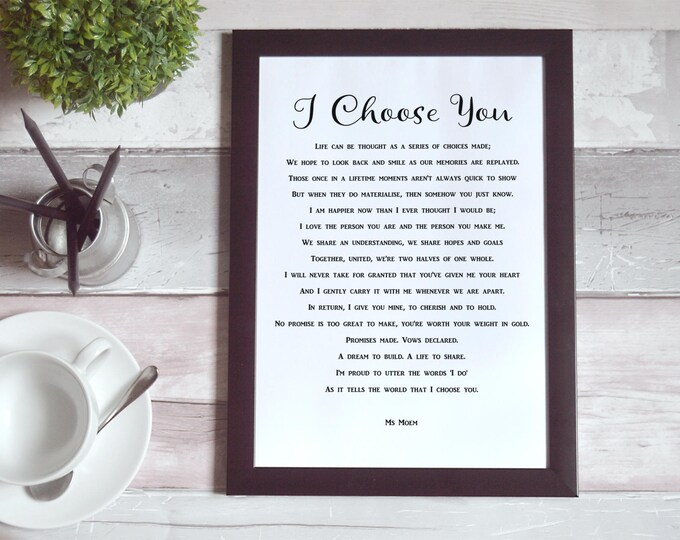 I Choose You
Life can be thought as a series of choices made;
We hope to look back and smile as our memories are replayed.
Those once in a lifetime moments aren't always quick to show
But when they do materialise, then somehow you just know.
I am happier now than I ever thought I would be;
I love the person you are and the person you make me.
We share an understanding, we share hopes and goals
Together, united, we're two halves of one whole.
I will never take for granted that you've given me your heart
And I gently carry it with me whenever we are apart.
In return, I give you mine, to cherish and to hold.
No promise is too great to make, you're worth your weight in gold.
Promises made. Vows declared.
A dream to build. A life to share.
I'm proud to utter the words 'I do'
As it tells the world that I choose you.
Ms Moem